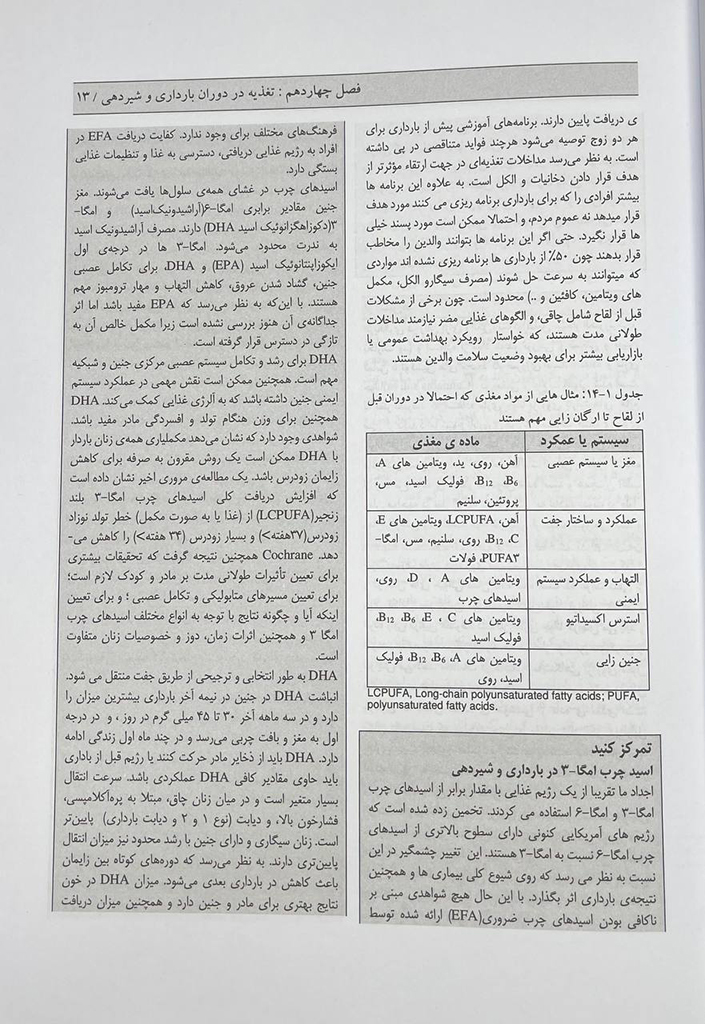 فصل چهاردهم : تغذیه در دوران بارداری و شیردهی / ۱۳
ی دریافت پایین دارند. برنامه‌های آموزشی پیش از بارداری برای
هر دو زوج توصیه می‌شود هرچند فواید متناقصی در پی داشته
است. به نظر می‌رسد مداخلات تغذیه‌ای در جهت ارتقاء مؤثرتر از
هدف قرار دادن دخانیات و الکل است. به علاوه این برنامه ها
بیشتر افرادی را که برای بارداری برنامه ریزی می کنند مورد هدف
قرار میدهد نه عموم مردم، و احتمالا ممکن است مورد پسند خیلی
ها قرار نگیرد. حتی اگر این برنامه ها بتوانند والدین را مخاطب
قرار بدهند چون ۵۰٪ از بارداری ها برنامه ریزی نشده اند مواردی
که میتوانند به سرعت حل شوند (مصرف سیگارو الکل، مکمل
های ویتامین، کافئین و ..) محدود است. چون برخی از مشکلات
قبل از لقاح شامل چاقی، و الگوهای غذایی مضر نیازمند مداخلات
طولانی مدت هستند، که خواستار رویکرد بهداشت عمومی یا
بازاریابی بیشتر برای بهبود وضعیت سلامت والدین هستند.
جدول ۱-۱۴: مثال هایی از مواد مغذی که احتمالا در دوران قبل
از لقاح تا ارگان زایی مهم هستند
سیستم یا عمکرد ماده ی مغذی
مغز یا سیستم عصبی آهن، روی، ید، ویتامین های A،
B6، B12، فولیک اسید، مس،
پروتئین، سلنیم
عملکرد و ساختار جفت آهن، LCPUFA، ویتامین های E،
C، B12، روی، سلنیم، مس، امگا-
۳PUFA، فولات
التهاب و عملکرد سیستم ایمنی ویتامین های A ، D، روی،
اسیدهای چرب
استرس اکسیداتیو ویتامین های C ، E، B6، B12،
فولیک اسید
جنین زایی ویتامین های A، B6، B12، فولیک
اسید، روی
LCPUFA, Long-chain polyunsaturated fatty acids; PUFA,
polyunsaturated fatty acids.
تمرکز کنید
اسید چرب امگا-۳ در بارداری و شیردهی
اجداد ما تقریبا از یک رژیم غذایی با مقدار برابر از اسیدهای چرب
امگا-۳ و امگا-۶ استفاده می کردند. تخمین زده شده است که
رژیم های آمریکایی کنونی دارای سطوح بالاتری از اسیدهای
چرب امگا-۶ نسبت به امگا-۳ هستند. این تغییر چشمگیر در این
نسبت به نظر می رسد که روی شیوع کلی بیماری ها و همچنین
نتیجه‌ی بارداری اثر بگذارد. با این حال هیچ شواهدی مبنی بر
ناکافی بودن اسیدهای چرب ضروری(EFA) ارائه شده توسط
فرهنگ‌های مختلف برای وجود ندارد. کفایت دریافت EFA در
افراد به رژیم غذایی دریافتی، دسترسی به غذا و تنظیمات غذایی
بستگی دارد.
اسیدهای چرب در غشای همه‌ی سلول‌ها یافت می‌شوند. مغز
جنین مقادیر برابری امگا-۶(آراشیدونیک‌اسید) و امگا-
۳(دکوزاهگزانوئیک اسید DHA) دارند. مصرف آراشیدونیک اسید
به ندرت محدود می‌شود. امگا-۳ ها در درجه‌ی اول
ایکوزاپنتانوئیک اسید (EPA) و DHA، برای تکامل عصبی
جنین، گشاد شدن عروق، کاهش التهاب و مهار ترومبوز مهم
هستند. با این‌که به نظر می‌رسد که EPA مفید باشد اما اثر
جداگانه‌ی آن هنوز بررسی نشده است زیرا مکمل خالص آن به
تازگی در دسترس قرار گرفته است.
DHA برای رشد و تکامل سیستم عصبی مرکزی جنین و شبکیه
مهم است. همچنین ممکن است نقش مهمی در عملکرد سیستم
ایمنی جنین داشته باشد که به آلرژی غذایی کمک می‌کند. DHA
همچنین برای وزن هنگام تولد و افسردگی مادر مفید باشد.
شواهدی وجود دارد که نشان می‌دهد مکملیاری همه‌ی زنان باردار
با DHA ممکن است یک روش مقرون به صرفه برای کاهش
زایمان زودرس باشد. یک مطالعه‌ی مروری اخیر نشان داده است
که افزایش دریافت کلی اسیدهای چرب امگا-۳ بلند
زنجیر(LCPUFA) از (غذا یا به صورت مکمل) خطر تولد نوزاد
زودرس(۳۷هفته>) و بسیار زودرس (۳۴ هفته>) را کاهش می-
دهد. Cochrane همچنین نتیجه گرفت که تحقیقات بیشتری
برای تعیین تأثیرات طولانی مدت بر مادر و کودک لازم است؛
برای تعیین مسیرهای متابولیکی و تکامل عصبی ؛ و برای تعیین
اینکه آیا و چگونه نتایج با توجه به انواع مختلف اسیدهای چرب
امگا ۳ و همچنین اثرات زمان، دوز و خصوصیات زنان متفاوت
است.
DHA به طور انتخابی و ترجیحی از طریق جفت منتقل می شود.
انباشت DHA در جنین در نیمه آخر بارداری بیشترین میزان را
دارد و در سه ماهه آخر ۳۰ تا ۴۵ میلی گرم در روز ، و در درجه
اول به مغز و بافت چربی می‌رسد و در چند ماه اول زندگی ادامه
دارد. DHA باید از ذخایر مادر حرکت کنند یا رژیم قبل از باداری
باید حاوی مقادیر کافی DHA عملکردی باشد. سرعت انتقال
بسیار متغیر است و در میان زنان چاق، مبتلا به پره‌آکلامپسی،
فشارخون بالا، و دیابت (نوع ۱ و ۲ و دیابت بارداری) پایین‌تر
است. زنان سیگاری و دارای جنین با رشد محدود نیز میزان انتقال
پایین‌تری دارند. به نظر می‌رسد که دوره‌های کوتاه بین زایمان
باعث کاهش در بارداری بعدی می‌شود. میزان DHA در خون
نتایج بهتری برای مادر و جنین دارد و همچنین میزان دریافت